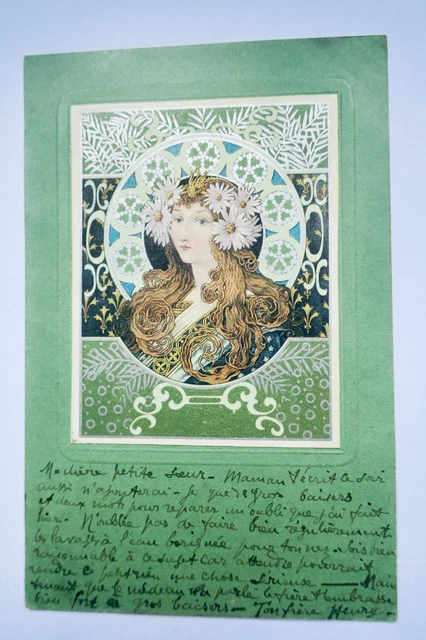 Ma chère petite sœur - Maman t'écrit ce soir
aussi n'ajouterai-je que de gros baisers
et deux mots pour réparer un oubli que j'ai fait
hier. N'oublie pas de faire bien régulièrement
les lavages à l'eau boriquée pour ton nez - sois bien
raisonnable à ce sujet car attendre pourrait
rendre ce petit rien une chose sérieuse — Main
tenant que le médecin a parlé le frère t'embrasse
bien fort de gros baisers - Ton frère Henry -